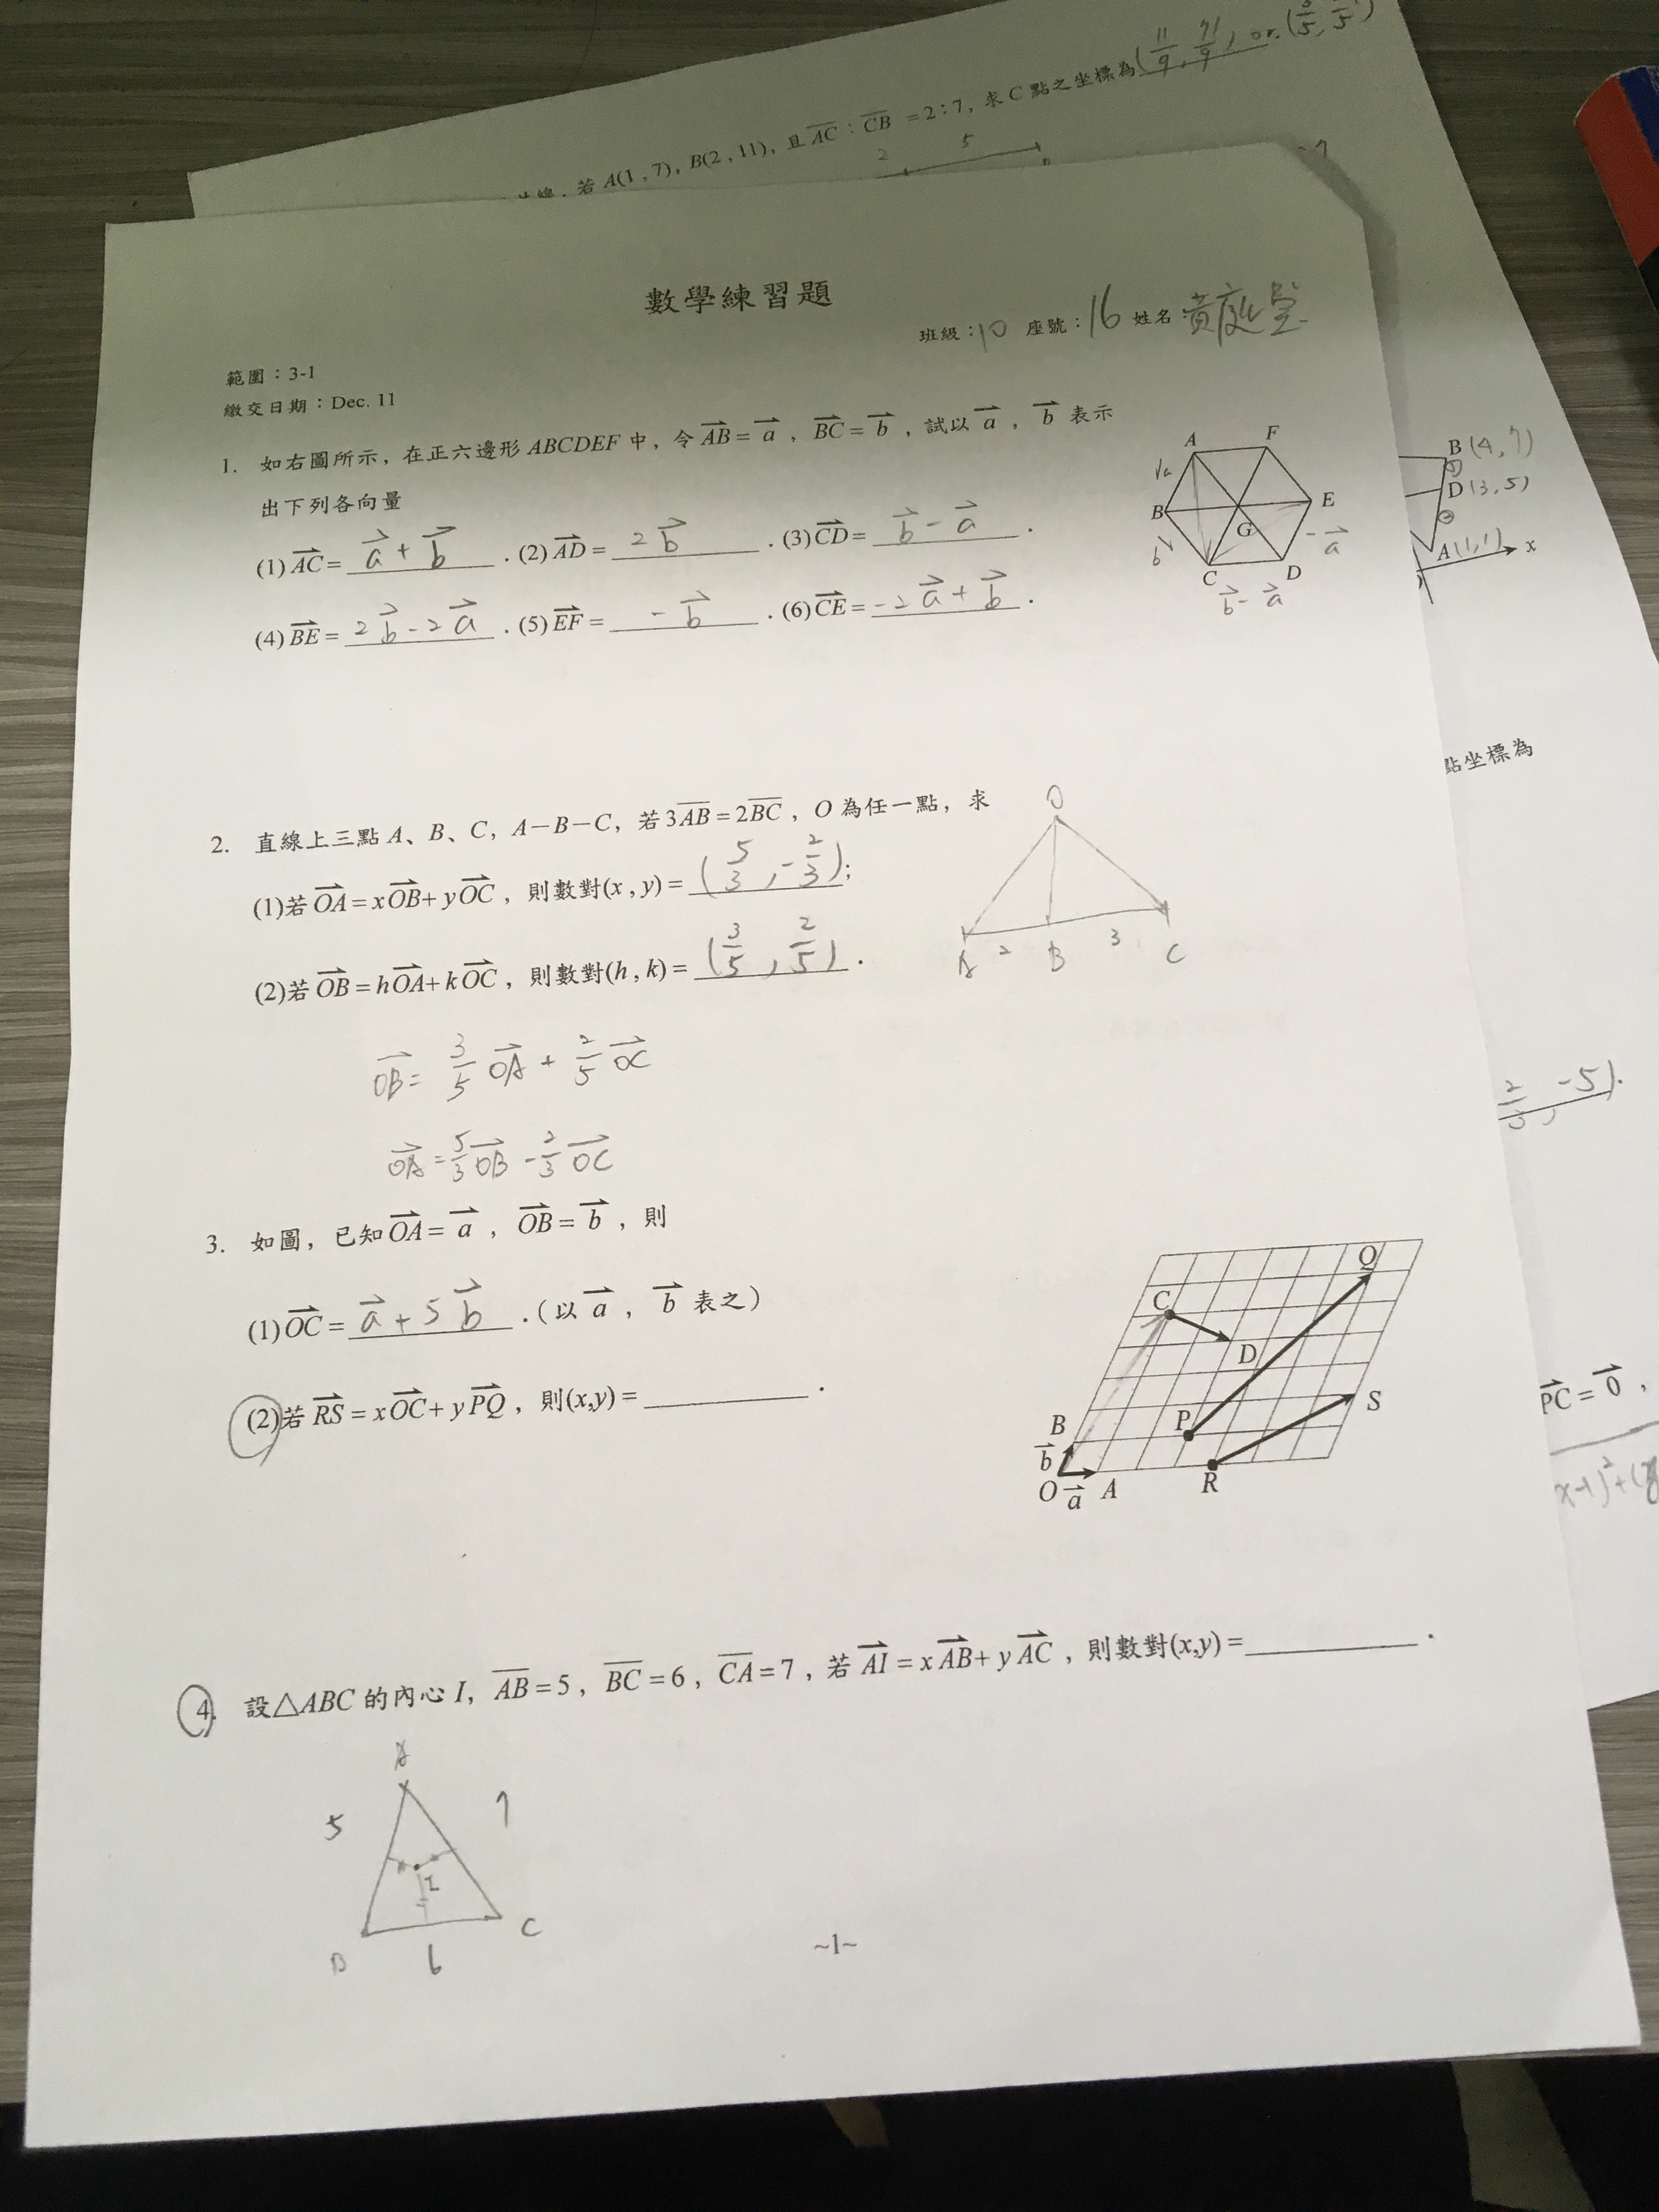 若 A(1 , 7), B(2 , 11), 且 AC : CB = 2 : 7, 求 C 點之坐標為 (11/9, 71/9) or
2 5
數學練習題
班級：10 座號：16 姓名：黃庭
範圍：3-1
繳交日期：Dec. 11
1. 如右圖所示，在正六邊形 ABCDEF 中，令 AB = a ，BC = b ，試以 a ， b 表示
出下列各向量
(1) AC = a + b . (2) AD = 2 b . (3) CD = b - a .
(4) BE = 2 b - 2 a . (5) EF = - b . (6) CE = -2 a + b .
A F
B G E
C D
b - a
- a
B (4, 7)
D (3, 5)
A (1, 1) x
點坐標為
2. 直線上三點 A、B、C, A－B－C, 若 3AB = 2BC , O 為任一點, 求
(1)若 OA = xOB + yOC , 則數對(x , y) = (5/3, -2/3) ;
(2)若 OB = hOA + kOC , 則數對(h , k) = (3/5, 2/5) .
O
A 2 B 3 C
OB = 3/5 OA + 2/5 OC
OA = 5/3 OB - 2/3 OC
-5).
3. 如圖, 已知 OA = a , OB = b , 則
(1) OC = a + 5 b . (以 a , b 表之)
(2)若 RS = xOC + yPQ , 則(x,y) = ________ .
Q
C
D
B P S
b
O a A R
PC = 0 ,
4. 設△ABC 的內心 I, AB = 5 , BC = 6 , CA = 7 , 若 AI = xAB + yAC , 則數對(x,y) = ________ .
A
5 7
I
B 6 C
~1~